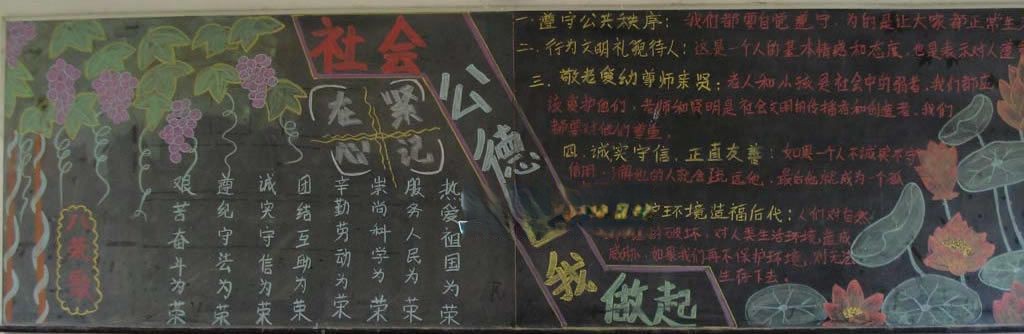 社会
公德
紧记
在心
热爱祖国为荣
服务人民为荣
崇尚科学为荣
辛勤劳动为荣
团结互助为荣
诚实守信为荣
遵纪守法为荣
艰苦奋斗为荣
八荣
我做起
一.遵守公共秩序：我们都要自觉遵守.为的是让大家都正常生
二.行为文明礼貌待人：这是一个人的基本情感和态度.也是表示对人
三.敬老爱幼尊师亲贤：老人和小孩是社会中的弱者.我们都应
该爱护他们.老师和贤明是社会文明的传播者和创造者.我们
都要对他们尊重.
四.诚实守信.正直友善：如果一个人不诚实不守
信用.了解他的人就会远远他.最后他就成为一个孤
护环境造福后代：人们对自然
的破坏.对人类生活环境造成
威胁.如果我们再不保护环境.对无法
生存下去.